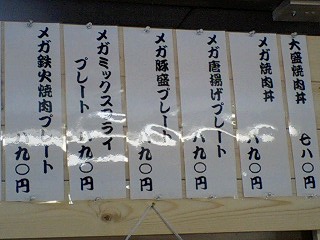 大盛焼肉丼 七八〇円
メガ焼肉丼 八九〇円
メガ唐揚げプレート 八九〇円
メガ豚盛プレート 八九〇円
メガミックスフライ
プレート 八九〇円
メガ鉄火焼肉プレート 八九〇円